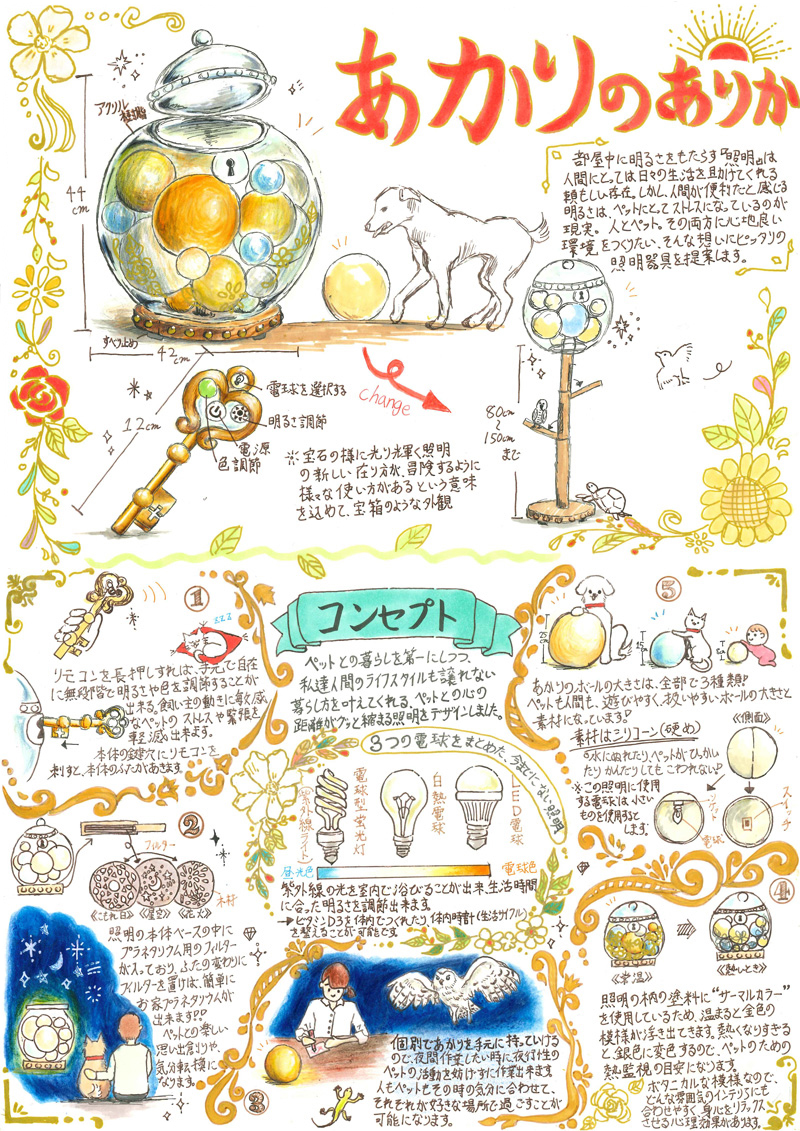 あかりのありか
部屋中に明るさをもたらす『照明』は
人間にとっては日々の生活を助けてくれる
頼もしい存在。しかし、人間が便利だと感じる
明るさは、ペットにとってストレスになっているのが
現実。人とペット。その両方に心地良い
環境をつくりたい、そんな想いにピッタリの
照明器具を提案します。
アクリル
44
cm
すべり止め
42cm
12cm
電球を選択する
明るさ調節
電源
色調節
change
80cm
〜
150cm
まで
※宝石の様に光り輝く照明
の新しい在り方が、冒険するように
様々な使い方があるという意味
を込めて、宝箱のような外観
①
zzz
リモコンを長押しすれば、手元で自在
に無段階で明るさや色を調節することが
出来る。飼い主の動きに敏感
なペットのストレスや緊張を
軽減出来ます。
本体の鍵穴にリモコンを
刺すと、本体のふたがあきます。
コンセプト
ペットとの暮らしを第一にしつつ、
私達人間のライフスタイルも譲れない
暮らし方を叶えてくれる、ペットとの心の
距離がグッと縮まる照明をデザインしました。
3つの電球をまとめた、今までにない照明
紫外線ライト
電球型蛍光灯
白熱電球
LED電球
昼光色
電球色
紫外線の光を室内で浴びることが出来、生活時間
に合った明るさを調節出来ます。
→ビタミンD3を体内でつくれたり、体内時計(生活サイクル)
を整えることが可能です
⑤
25cm
15cm
あかりのボールの大きさは、全部で3種類!
ペットも人間も、遊びやすく、扱いやすいボールの大きさと
素材になっています!
素材はシリコーン(硬め)
水にぬれたり、ペットがひっかい
たりかんだりしても、こわれない!
※この照明に使用
する電球は、小さい
ものを使用すると
します。
《側面》
電球
スイッチ
②
フィルター
ネオ
《こもれ日》
《星空》
《花火》
照明の本体ベースの中に
プラネタリウム用のフィルター
が入っており、ふたの変わりに
フィルターを置けば、簡単に
お家プラネタリウムが
出来ます!!
ペットとの楽しい
思い出創りや、
気分転換に
なります。
③
個別であかりを手元に持っていける
ので、夜間作業したい時に夜行性の
ペットの活動を妨げずに作業出来ます
人もペットもその時の気分に合わせて、
それぞれが好きな場所で過ごすことが
可能になります。
④
《常温》
《熱いとき》
照明の柄の塗料に"サーマルカラー"
を使用しているため、温まると金色の
模様が浮き出てきます。熱くなりすぎる
と、銀色に変色するので、ペットのための
熱監視の目安になります。
ボタニカルな模様なので、
どんな雰囲気のインテリアにも
合わせやすく、身心をリラックス
させる心理効果があります。